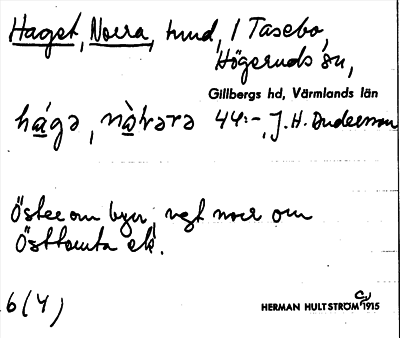 Haget, Norra, tund, / Tasebo,
Högeruds sn,
Gillbergs hd, Värmlands län
hágə, nàrara 44:-, J.H. Andersson
Öster om byn, vgt norr om
Östtomta ek.
6(4)
HERMAN HULTSTRÖM 1915